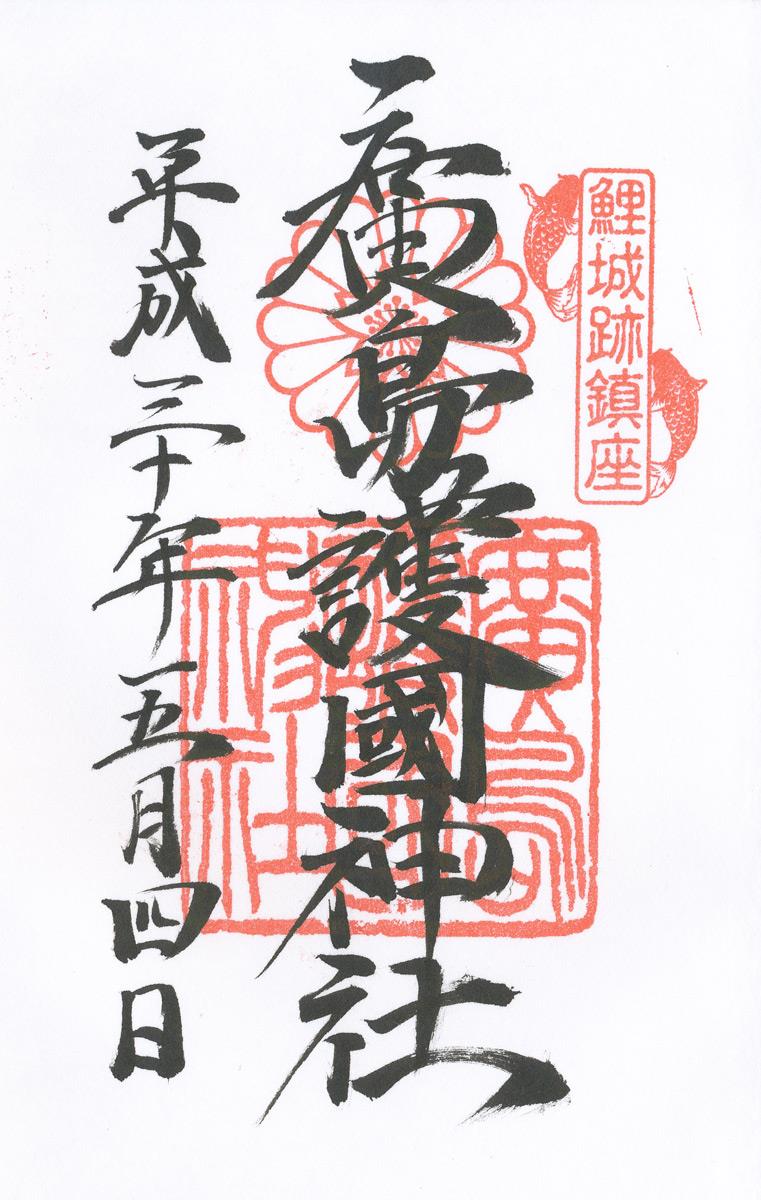 鯉城跡鎮座
廣島護國神社
廣島護國神社
平成三十年五月四日